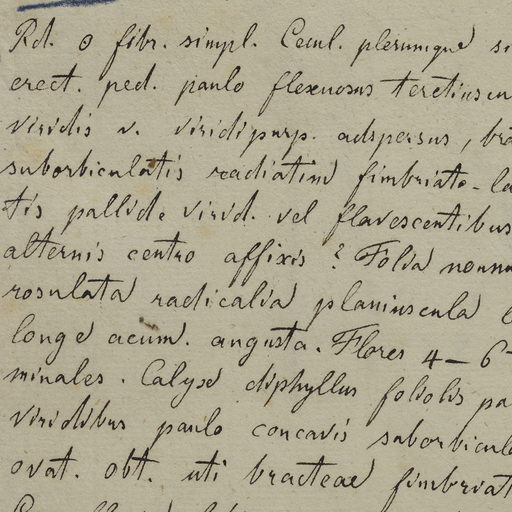 Rd. ⊙ fibr. simpl. Caul. plerumque
erect. ped. paulo flexuosus
viridis v. viridipurp. adspersus,
suborbiculatis radiatim fimbriato-
tis pallide virid. vel flavescentibus
alternis centro affixis? Folia
rosulata radicalia planiuscula
longe acum. angusta. Flores 4-6-
minales. Calyx diphyllus foliolis
viridibus paulo concavis
ovat. obt. uti bracteae